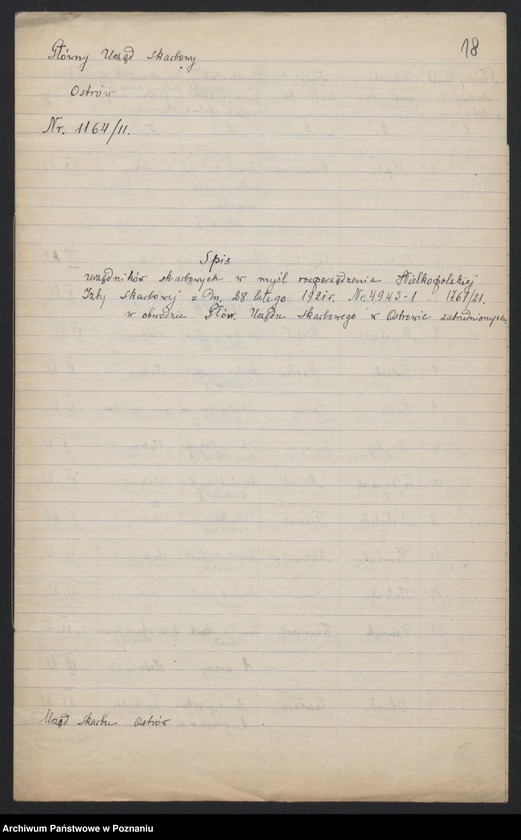 18
Główny Urząd Skarbowy
Ostrów
Nr. 1164/11.
Spis
urzędników skarbowych w myśl rozporządzenia Wielkopolskiej
Izby Skarbowej z dn. 28 lutego 1921 r. Nr. 4943-1 1761/21.
w obwodzie Głów. Urzędu Skarbowego w Ostrowie zatrudnionych.
Urząd Skarbu Ostrów
Archiwum Państwowe w Poznaniu